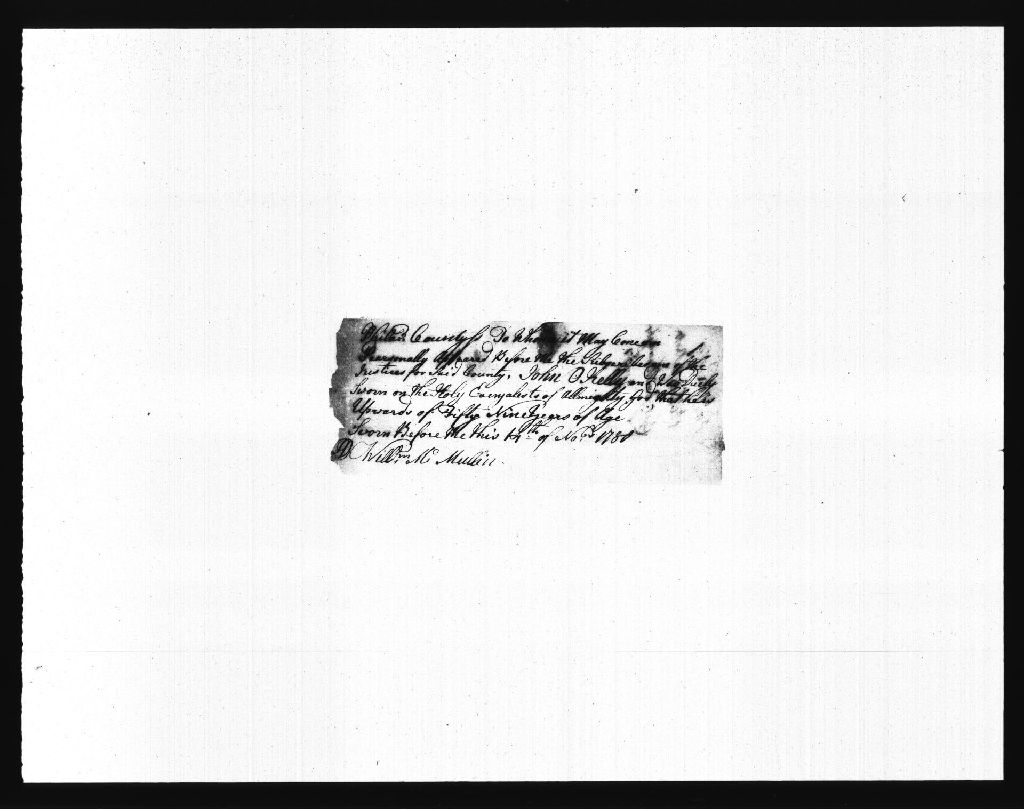 Wilkes County ss To Whom it May Concern
Personally Appeared Before Me the Subscriber one of the
Justices for Said County, John O Kelly and Was Duly
Sworn on the Holy Evengalests of Allmighty God that he is
Upwards of Fifty Nine Years of Age
Sworn Before Me this 14th of Nobr 1788
Willm Mc Mullin